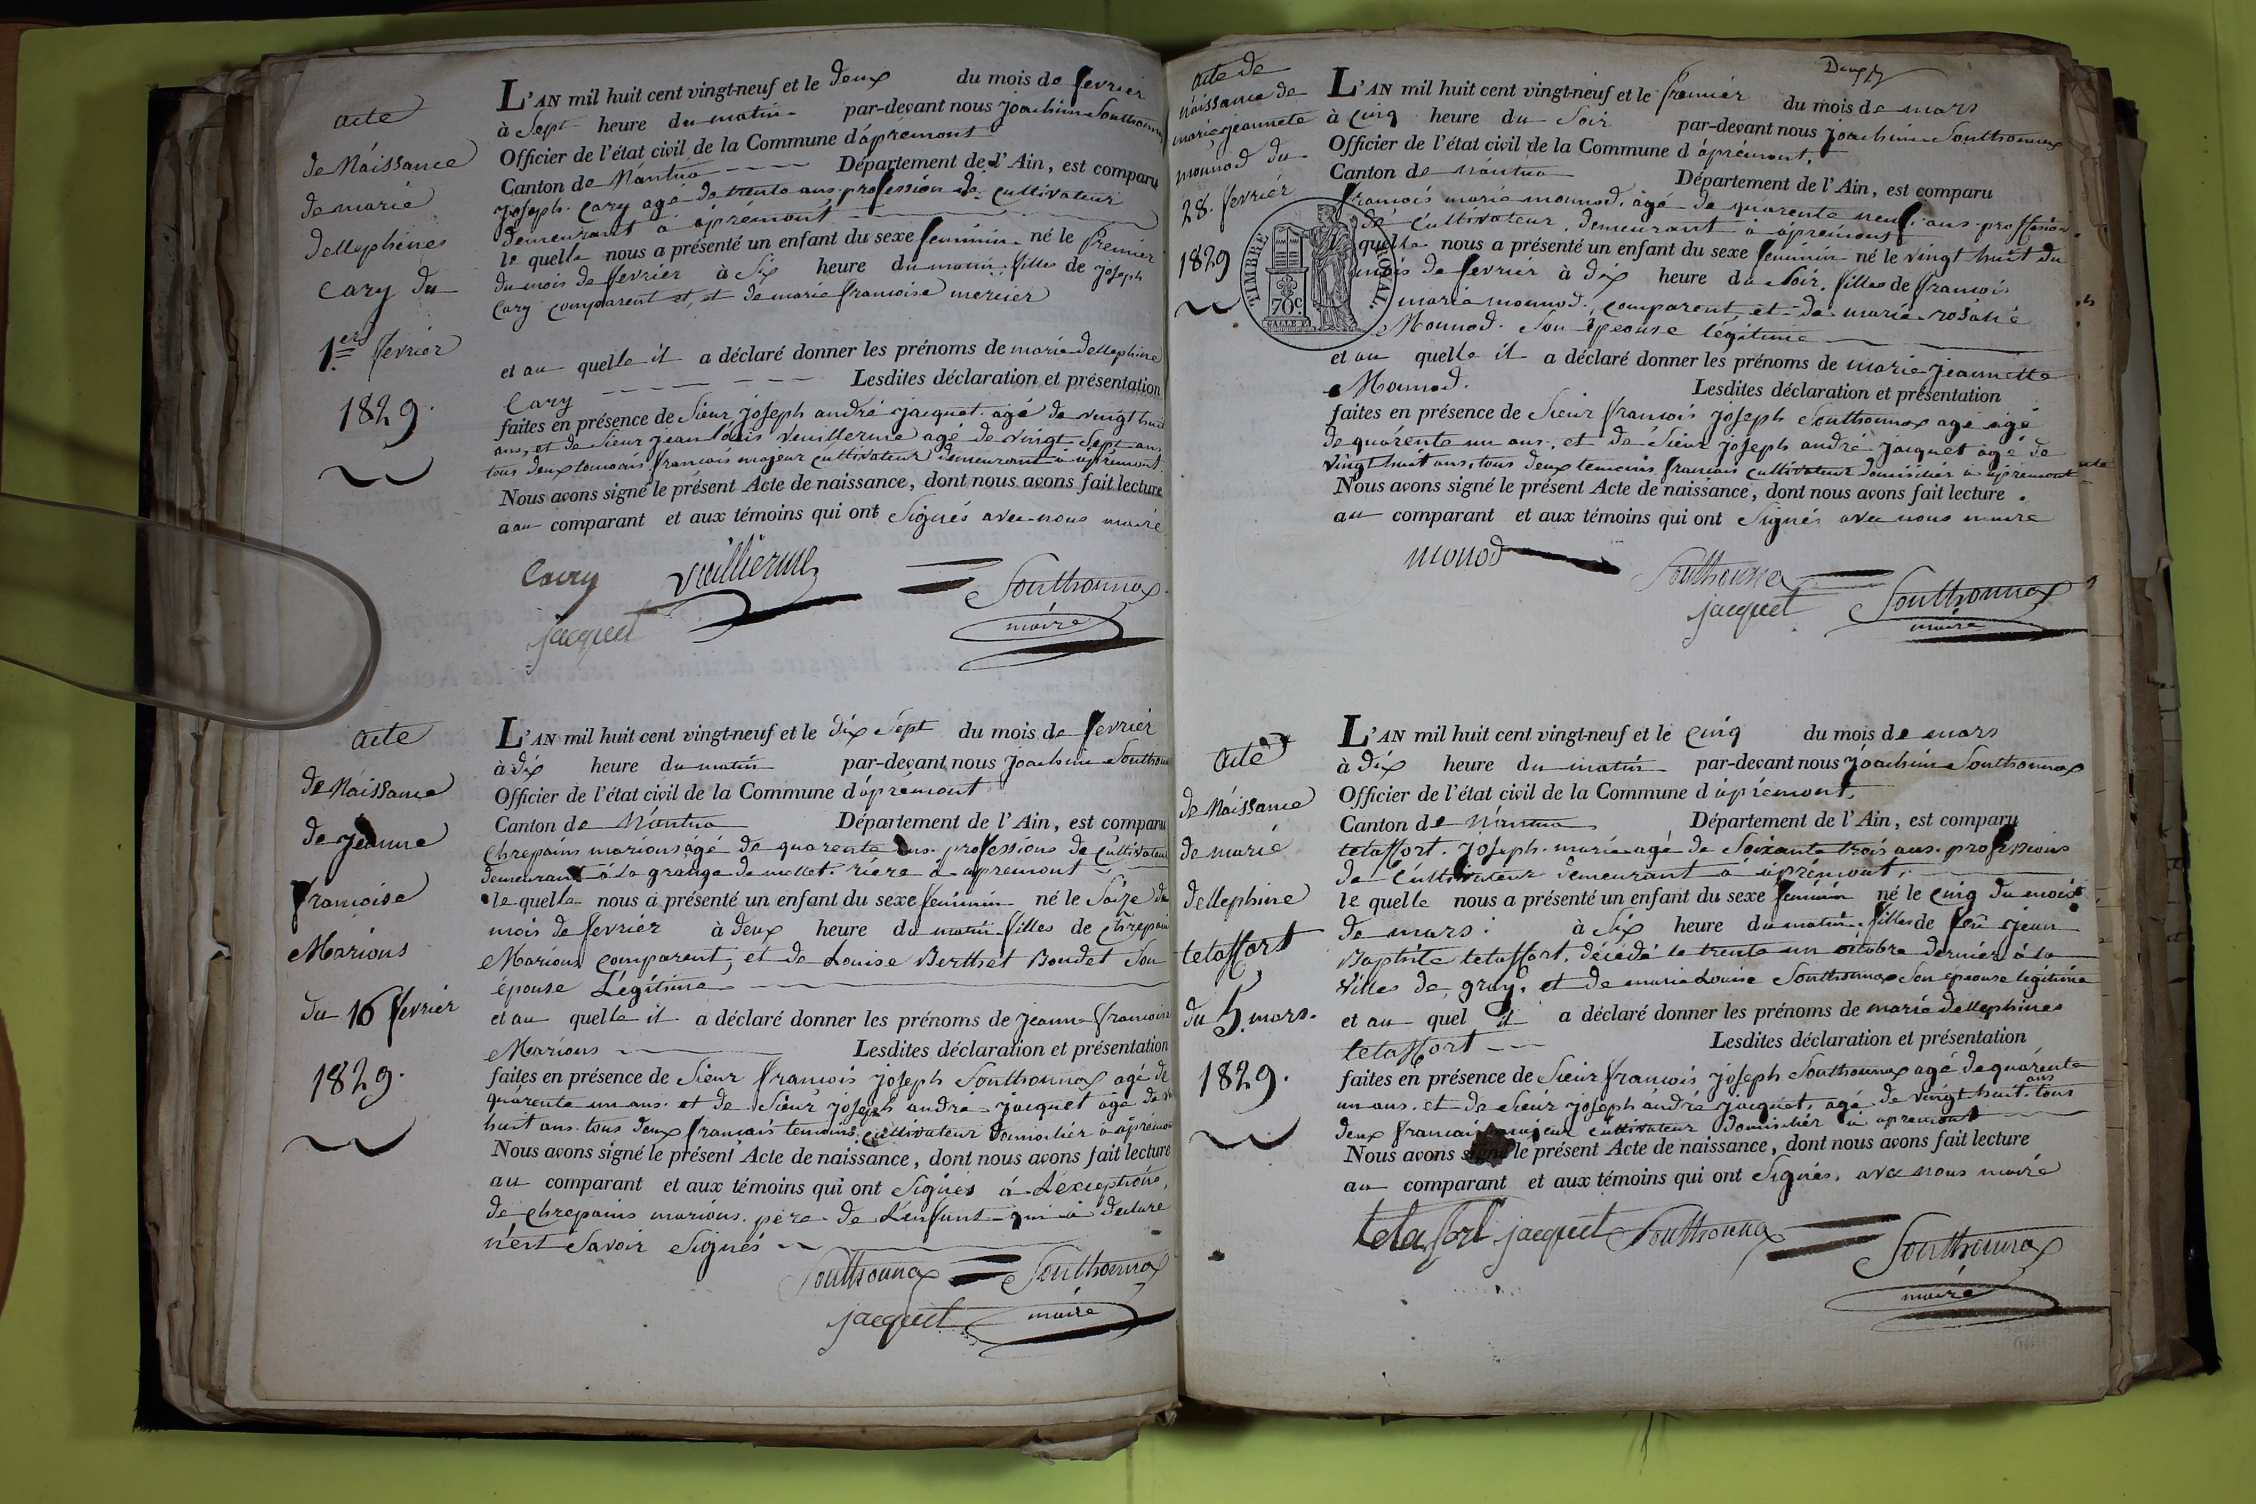 acte
de Náissance
de marié
dellephines
Cary du
1er fevriér
1829.
L'AN mil huit cent vingt-neuf et le deux du mois de fevriér
à Sept heure du matin par-devant nous joachim Southonnax
Officier de l'état civil de la Commune d'áprémont
Canton de Nantua Département de l'Ain, est comparu
joseph Cary agé de trente ans profession de Cultivateur
demeurant á áprémont
le quelle nous a présenté un enfant du sexe feminin né le Premier
du mois de fevriér à Six heure du matin filles de joseph
Cary comparent et, et de marie francoise mercier
et au quelle il a déclaré donner les prénoms de marie dellephine
Cary Lesdites déclaration et présentation
faites en présence de Sieur joseph andré jacquet agé de vingt huit
ans, et de Sieur jean louis Vuillerme agé de vingt Sept ans
tous deux temoins francois majeur cultivateur demeurant á áprémont
Nous avons signé le présent Acte de naissance, dont nous avons fait lecture
a au comparant et aux témoins qui ont Signés avec nous maire
Cary Vuillierme Southonnax
jacquet maire
acte
de Náissance
de jeanne
françoise
Marious
du 16 fevriér
1829.
L'AN mil huit cent vingt-neuf et le dix Sept du mois de fevriér
à dix heure du matin par-devant nous joachim Southonnax
Officier de l'état civil de la Commune d'áprémont
Canton de Nántua Département de l'Ain, est comparu
Chrepains marious agé de quarente ans professions de Cultivateur
demeurant á la grange de mollet riére á apremont
le quelle nous a présenté un enfant du sexe feminin né le Saize du
mois de fevriér à deux heure du matin filles de Chrepain
Marious comparent, et de Louise Berthet Bondet Son
épouse Légitime
et au quelle il a déclaré donner les prénoms de jeanne francoise
Marious Lesdites déclaration et présentation
faites en présence de Sieur francois joseph Southonnax agé de
quarente un ans et de Sieur joseph andré jacquet agé de
huit ans tous deux francais temoins cultivateur domicilier á áprémon
Nous avons signé le présent Acte de naissance, dont nous avons fait lecture
au comparant et aux témoins qui ont Signés á L'exceptions,
de Chrepains marious pére de L'enfant qui á declare
n'ent Savoir Signés
Southonnax Southonnax
jacquet maire
Deux
acte de
náissance de
marie jeannete
mounod du
28. fevriér
1829
L'AN mil huit cent vingt-neuf et le premiér du mois de mars
à Cinq heure du Soir par-devant nous joachim Southonnax
Officier de l'état civil de la Commune d'áprémont,
Canton de nántua Département de l'Ain, est comparu
francois marie mounod, agé de quarente neuf ans proffésion
de Cultivateur demeurant a apremont
quelle nous a présenté un enfant du sexe feminin né le vingt huit du
mois de fevriér à dix heure du Soir. filles de francois
marie mounod, comparent, et de marie rosalie
Mounod. Son épeouse légitime
TIMBRE ROYAL.
70c.
et au quelle il a déclaré donner les prénoms de marie jeannette
Mounod. Lesdites déclaration et présentation
faites en présence de Sieur francois joseph Southonnax agé agé
de quárente un ans, et de Sieur joseph andré jacquet agé de
vingt huit ans, tous deux temoins francais cultivateur domicilier a apremont
Nous avons signé le présent Acte de naissance, dont nous avons fait lecture
au comparant et aux témoins qui ont Signés avec nous maire
monod Southonnax
jacquet Southonnax
maire
acte
de Náissance
de marié
dellephine
tetaffort
du 5. mars.
1829.
L'AN mil huit cent vingt-neuf et le Cinq du mois de mars
à dix heure du matin par-devant nous jóachim Southonnax
Officier de l'état civil de la Commune d'áprémont,
Canton de Nantua Département de l'Ain, est comparu
tetaffort. joseph marie agé de Soixante trois ans professions
de Cultivateur demeurant á áprémont,
le quelle nous a présenté un enfant du sexe feminin né le Cinq du mois
de mars. à Six heure du matin filles de feu jean
Baptiste tetaffort, décédé le trente un octobre derniér á la
Villes de gray, et de marie Louise Southonnax Son épeouse legitime
et au quel il a déclaré donner les prénoms de marie dellephines
tetaffort Lesdites déclaration et présentation
faites en présence de Sieur francois joseph Southonnax agé de quárente
un ans, et de Sieur joseph andré jacquet, agé de vingt huit ans tous
deux francais majeur cultivateur domicilier á apremont
Nous avons signé le présent Acte de naissance, dont nous avons fait lecture
au comparant et aux témoins qui ont Signés, avec nous maire
tetaffort jacquet Southonnax Southonnax
maire